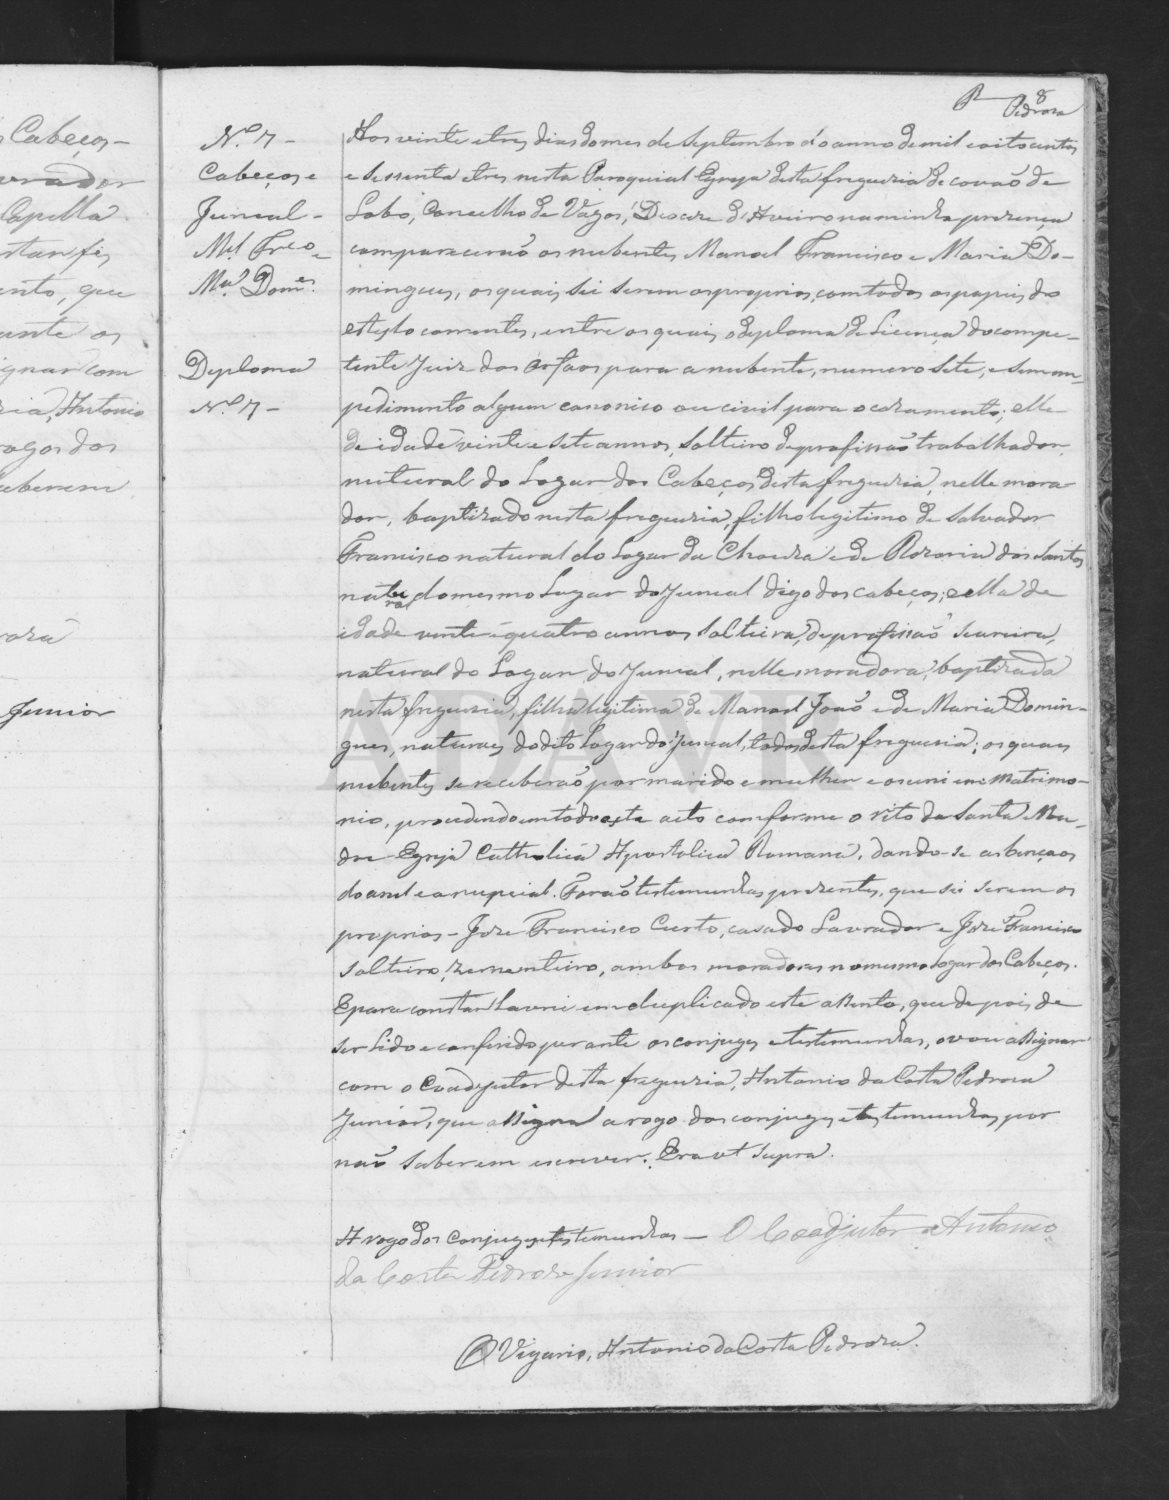 8
P Pedroza
Cabeços -
Capella
ento, que
ante os
ignar com
Antonio
rogo dos
saberem
Junior
N.º 7 -
Cabeços e
Juncal -
M.el Fr.co e
M.a Dom.es
Diploma
N.º 7 -
Aos vinte e tres dias do mes de Septembro do anno de mil e oitocentos
e sessenta e tres nesta Paroquial Egreja desta freguezia de covaõ de
Lobo, Concelho de Vagos, Diocese d'Aveiro na minha prezença
comparecerão os nubentes Manoel Francisco e Maria Do-
mingues, os quais sei serem os proprios, com todos os papeis do
estylo correntes, entre os quais o diploma de Licença do compe-
tente Juiz dos Orfaos para a nubente, numero sete, e sem im-
pedimento algum canonico ou civil para o cazamento; elle
de idade vinte e sete annos, solteiro de profissaõ trabalhador,
natural do Lugar dos Cabeços desta freguezia, nelle mora-
dor, baptizado nesta freguezia, filho legitimo de Salvador
Francisco natural do Lugar da Chouza e de Rozaria dos Santos
natural do mesmo Lugar do Juncal digo dos cabeços; e ella de
idade vinte e quatro annos solteira, de profissaõ seareira,
natural do Lugar do Juncal, nelle moradora, baptizada
nesta freguezia, filha legitima de Manoel João e de Maria Domin-
gues, naturaes do dito Lugar do Juncal, todos desta freguezia; os quais
nubentes se receberão por marido e mulher e os uni em Matrimo-
nio, procedendo em todo este acto conforme o rito da Santa Ma-
dre Egreja Catholica Apostolica Romana, dando-se as bençaos
do anel e a nupcial. Forão testemunhas prezentes, que sei serem os
proprios - Joze Francisco Curto, cazado Lavrador e Joze Francisco
solteiro, ambos moradores no mesmo Logar dos Cabeços.
E para constar lavrei em duplicado este assento, que depois de
ser Lido e conferido perante os conjuges e testemunhas, o vou assignar
com o Coadjutor desta freguezia, Antonio da Costa Pedroza
Junior, que assigna a rogo dos conjuges e testemunhas por
naõ saberem escrever. Era ut supra.
A rogo dos Conjuges e testemunhas - O Coadjutor Antonio
da Costa Pedroza Junior
O Vigario, Antonio da Costa Pedroza.
ADAVR